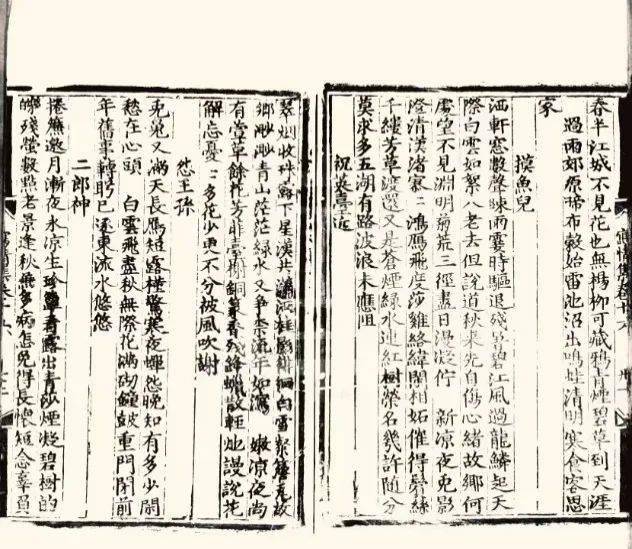 春半江城不見花也無楊柳可藏鴉青煙碧草到天涯
過雨郊原啼布穀始雷池沼出鳴蛙清明寒食客思
家
摸魚兒
洒軒窓數聲踈雨薄時驅退殘暑碧江風過龍鱗起天
際白雲如絮人老去但說道秋來先自傷心緒故鄉何
處望不見淵明荊蕪三徑盡日漫凝佇 新涼夜兔影
澄清漢渚寥寥鴻鴈飛度莎雞絡緯閑相妬催得鬢絲
千縷芳草渡還又是蒼煙綠水連紅樹榮名幾許隨分
莫求多五湖有路波浪未應阻
祝英臺近
翠烟收珠露下星漢共
鄉渺渺青山茫茫綠水又爭柰流年如瀉 嫩涼夜尚
有當草餘花芳菲臺榭銅篆香殘鋒蠟散輕灺謾說花
解忘憂憂多花少更不分被風吹謝
怨王孫
兔魄又滿天長鴈短露槿驚寒夜蟬怨晚知有多少閒
愁在心頭 白雲飛盡秋無際花滿砌鐘皷重門閉前
年舊事轉眄已逐東流水悠悠
二郎神
捲簾邀月漸夜永涼生珍簟看露出青沙煙凝碧樹的
皪殘螢數點老景逢秋無多病怎免得長懷短念辜負